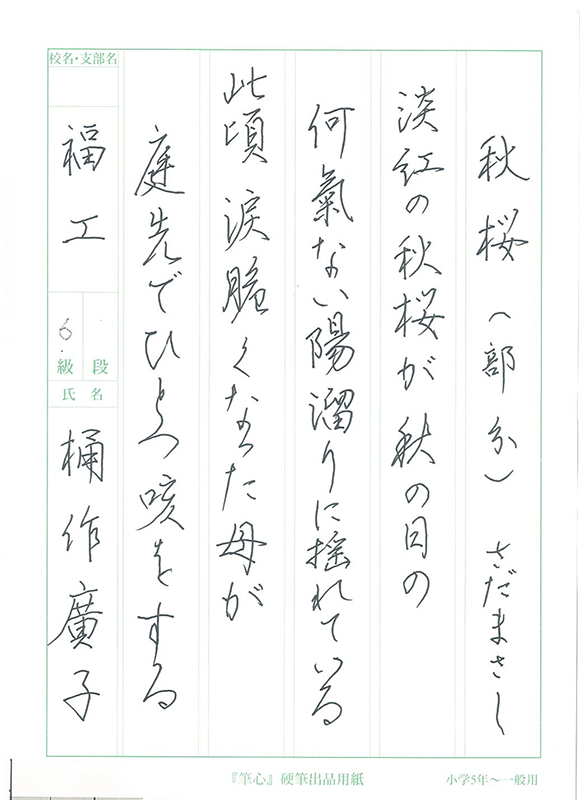 秋桜（部分） さだまさし
淡紅の秋桜が秋の日の
何氣ない陽溜りに揺れている
此頃涙脆くなった母が
庭先でひとつ咳をする
校名・支部名
福工
段
6.級
氏名
桶作廣子
『筆心』硬筆出品用紙
小学5年～一般用